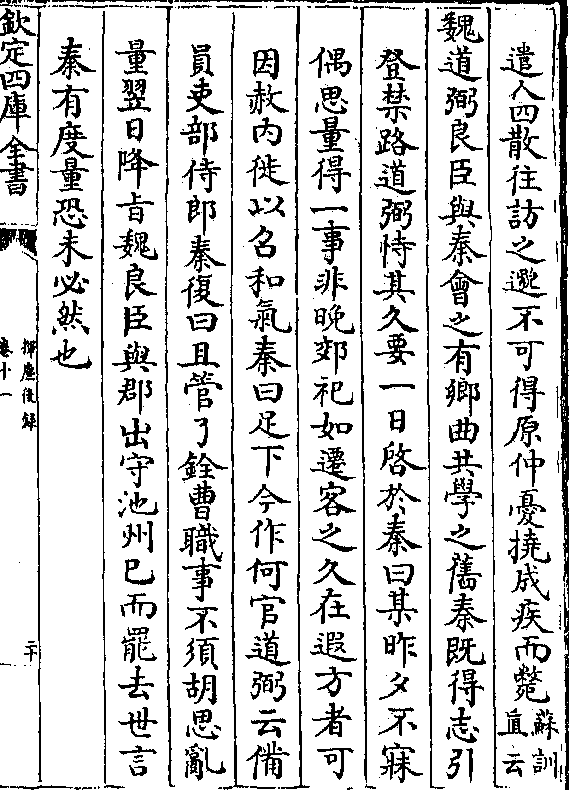 遣人四散往訪之邈不可得原仲憂撓成疾而斃蘇訓直云
魏道弼良臣與秦會之有鄉曲共學之舊秦既得志引
登禁路道弼恃其久要一日啓於秦曰某昨夕不寐
偶思量得一事非晚郊祀如遷客之久在遐方者可
因赦内徙以召和氣秦曰足下今作何官道弼云備
員吏部侍郎秦復曰且管了銓曹職事不須胡思亂
量翌日降旨魏良臣與郡出守池州已而罷去世言
秦有度量恐未必然也
欽定四庫全書
揮麈後録
卷十一
二十